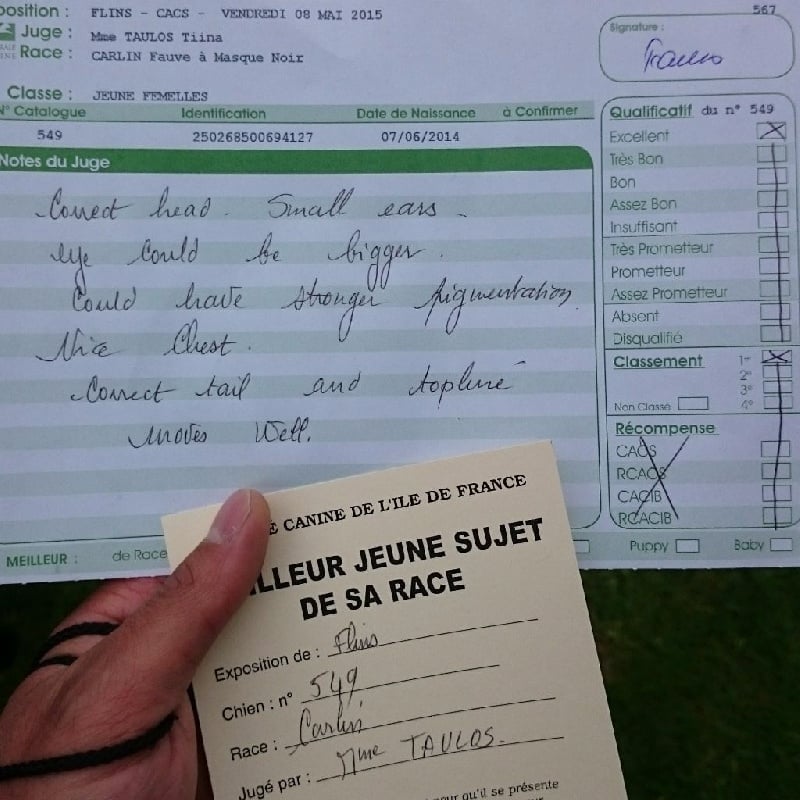 position : FLINS - CACS - VENDREDI 08 MAI 2015
Juge : Mme TAULOS Tiina
Race : CARLIN Fauve à Masque Noir
Classe : JEUNE FEMELLES
567
Signature :
Taulos
N° Catalogue Identification Date de Naissance à Confirmer
549 250268500694127 07/06/2014
Notes du Juge
Correct head. Small ears.
eye could be bigger.
Could have stronger pigmentation.
Nice Chest.
Correct tail and topline
moves well.
Qualificatif du n° 549
Excellent
Très Bon
Bon
Assez Bon
Insuffisant
Très Prometteur
Prometteur
Assez Prometteur
Absent
Disqualifié
Classement 1er
2e
3e
Non Classé 4e
Récompense
CACS
RCACS
CACIB
RCACIB
MEILLEUR : de Race Puppy Baby
E CANINE DE L'ILE DE FRANCE
ILLEUR JEUNE SUJET
DE SA RACE
Exposition de : Flins
Chien : n° 549
Race : Carlin
Jugé par : Mme TAULOS.
pour qu'il se présente